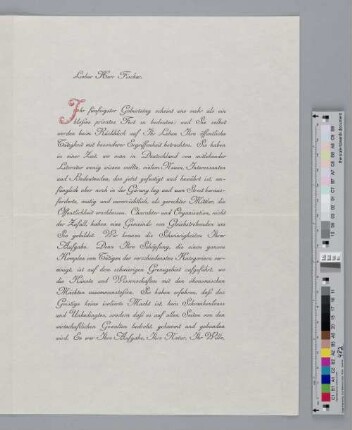 Lieber Herr Fischer.
Ihr fünfzigster Geburtstag scheint uns mehr als ein
bloßes privates Fest zu bedeuten; auch Sie selbst
werden beim Rückblick auf Ihr Leben Ihre öffentliche
Tätigkeit mit besonderer Ergriffenheit betrachten. Sie haben
in einer Zeit, wo man in Deutschland von
Literatur wenig wissen wollte, vielen Neuen, Interessanten
und Bedeutenden, das jetzt gefestigt und bewährt ist,
fänglich aber noch in der Gärung lag und zum Streit heraus-
forderte, mutig und unermüdlich, als gerechter Mittler, die
Öffentlichkeit erschlossen. Charakter und Organisation, nicht
der Zufall, haben eine Gemeinde von Gleichstrebenden um
Sie gebildet. Wir kennen die Schwierigkeiten Ihrer
Aufgabe. Denn Ihre Schöpfung, die einen ganzen
Komplex von Tätigen der verschiedensten Kategorien ver-
einigt, ist auf dem schwierigen Grenzgebiet aufgeführt, wo
die Künste und Wissenschaften mit den ökonomischen
Mächten zusammenstoßen. Sie haben erfahren, daß das
Geistige keine isolierte Macht ist, kein Schwebendes
und Unbedingtes, sondern daß es auf allen Seiten von den
wirtschaftlichen Gewalten bedroht, gehemmt und gebunden
wird. Es war Ihre Aufgabe, Ihre Natur, Ihr Wille,